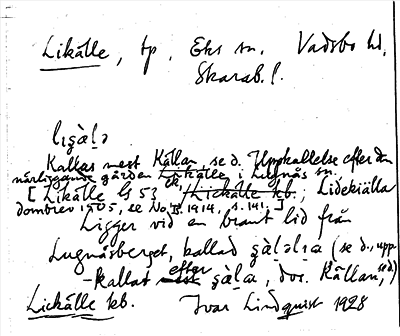 Likälle, tp, Eks sn. Vadsbo hd,
Skarab. l.
Kallas mest Källan, se d. Uppkallelse efter den
närliggande gården Likälle i Lugnås sn.
[Likälle G 53 ek, Lickälle kb.; Lidekiälla
dombrev 1505, 1914, s. 141.]
Ligger vid en brant lid från
Lugnåsberget, kallad (se d., upp-
-kallat efter dvs. Källan, se d.)
Lickälle kb. Ivar Lindquist 1928